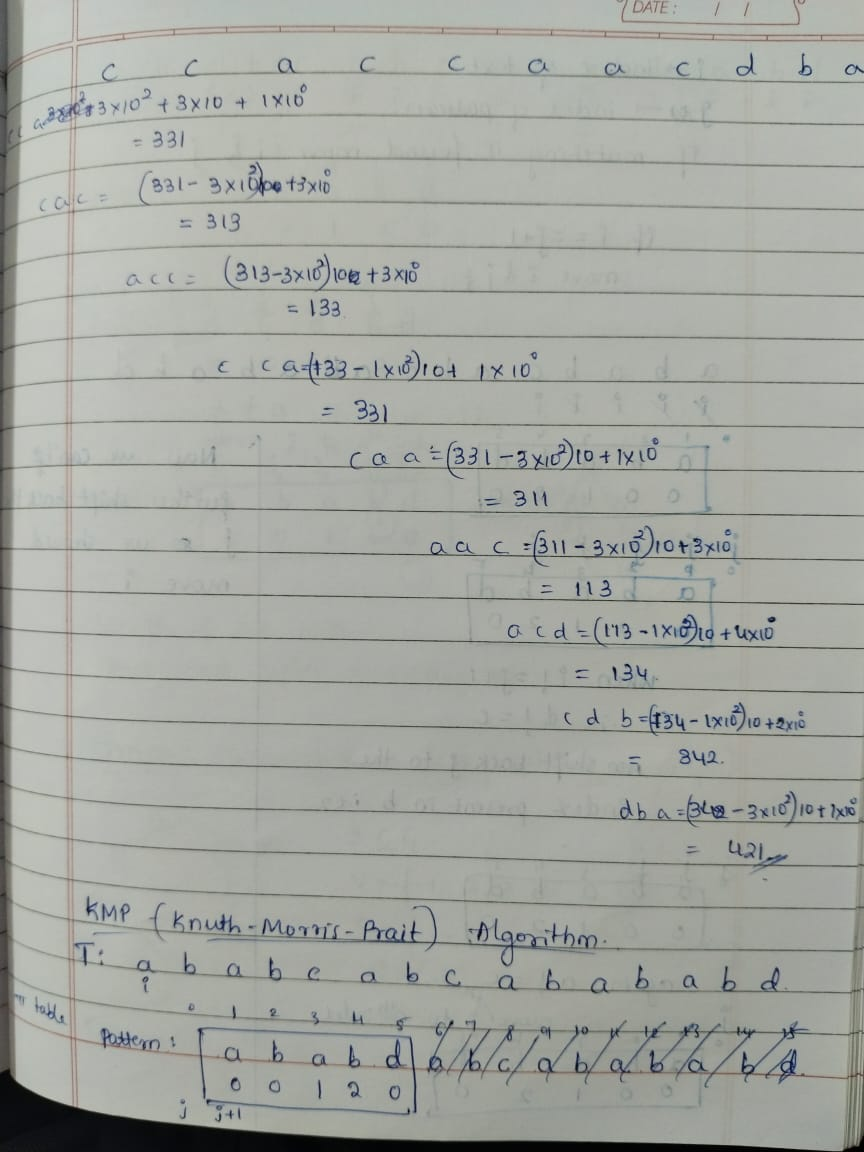 DATE: / /
c c a c c a a c d b a
c c a 3×10² + 3×10 + 1×10⁰
= 331
c a c = (331 - 3×10²)10 + 3×10⁰
= 313
a c c = (313-3×10²)10 + 3×10⁰
= 133
c c a = (133 - 1×10²)10 + 1×10⁰
= 331
c a a = (331 - 3×10²)10 + 1×10⁰
= 311
a a c = (311 - 3×10²)10 + 3×10⁰
= 113
a c d = (113 - 1×10²)10 + 4×10⁰
= 134
c d b = (134 - 1×10²)10 + 2×10⁰
= 342.
d b a = (342 - 3×10²)10 + 1×10⁰
= 421
KMP (Knuth-Morris-Prait) Algorithm.
T: a b a b c a b c a b a b a b d.
i
0 1 2 3 4 5 6 7 8 9 10 11 12 13 14 15
table
Pattern: a b a b d a b c a b a b a b d
0 0 1 2 0
j j+1